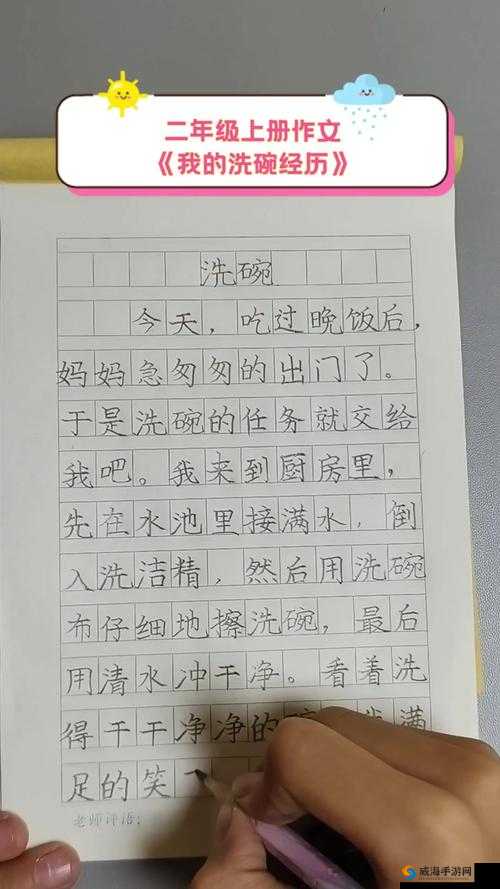 二年级上册作文
《我的洗碗经历》
洗碗
今天，吃过晚饭后，
妈妈急匆匆的出门了。
于是洗碗的任务就交给
我吧。我来到厨房里，
先在水池里接满水，倒
入洗洁精，然后用洗碗
布仔细地擦洗碗，最后
用清水冲干净。看着洗
得干干净净的
满
足的笑了
老师评语：
威海手游网